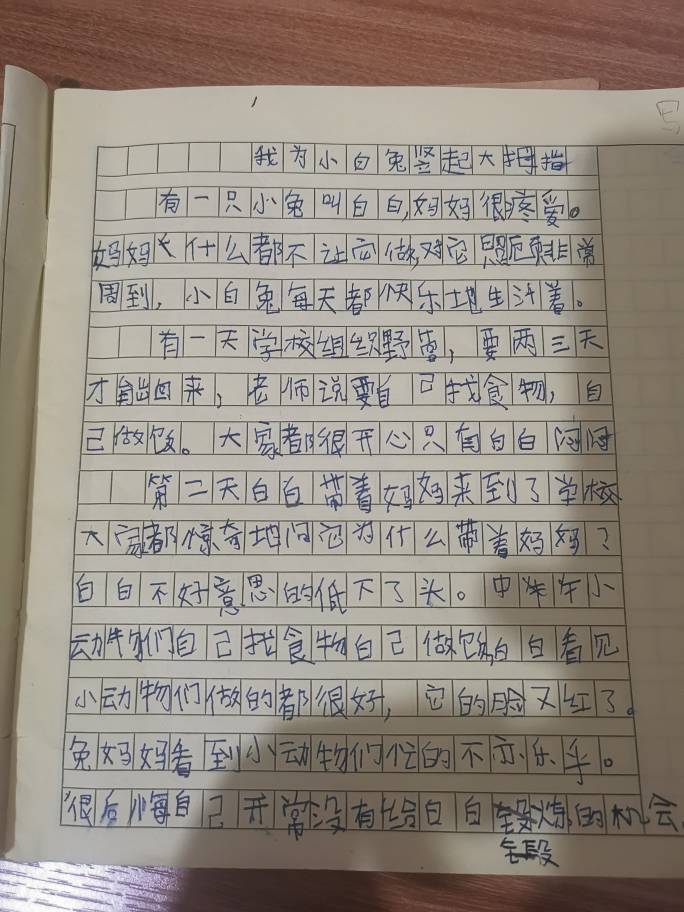 我为小白兔竖起大拇指
有一只小兔叫白白,妈妈很疼爱。
妈妈什么都不让它做,对它照顾非常
周到,小白兔每天都快乐地生活着。
有一天学校组织野营,要两三天
才能回来,老师说要自己找食物,自
己做饭。大家都很开心只有白白闷闷
第二天白白带着妈妈来到了学校
大家都惊奇地问它为什么带着妈妈?
白白不好意思的低下了头。中午小
动物们自己找食物自己做饭,白白看见
小动物们做的都很好,它的脸又红了。
兔妈妈看到小动物们忙的不亦乐乎。
很后悔自己平常没有给白白锻炼的机会。
锻